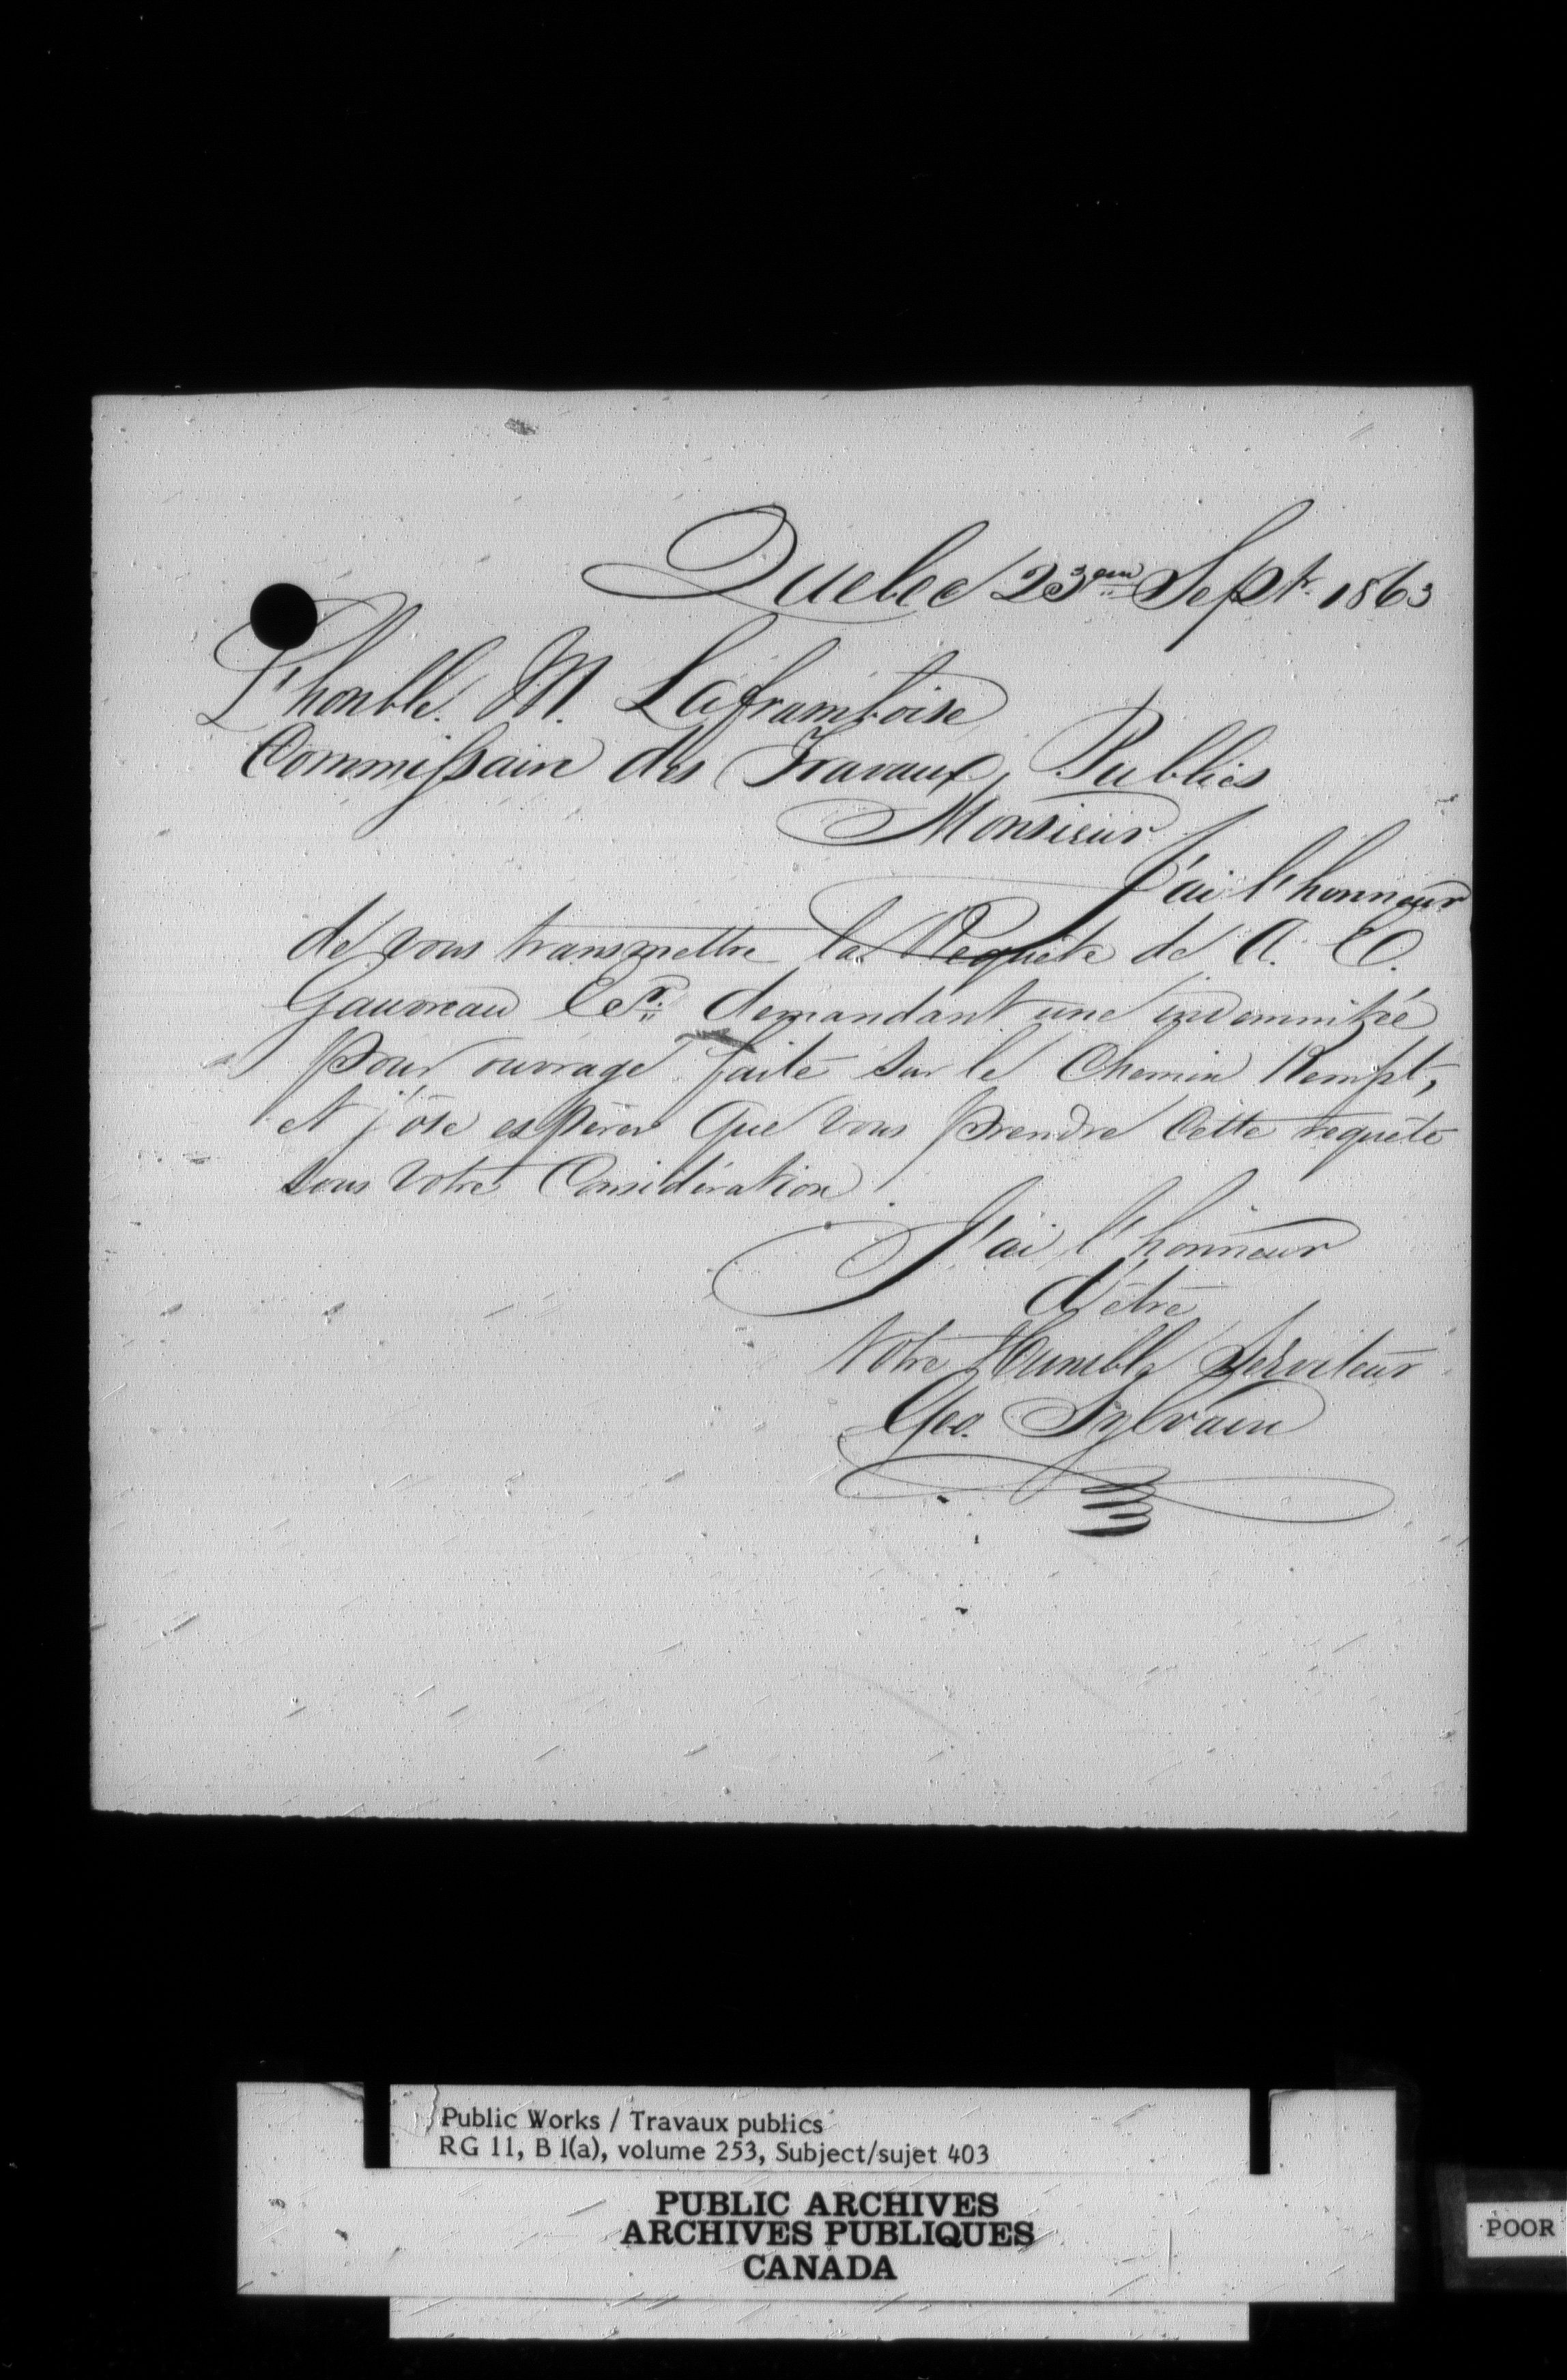 Quebec 23eme Sept. 1863
L'honble. M. Laframboise
Commissaire des Travaux Publics
Monsieur
J'ai l'honneur
de vous transmettre la Requête de A. C.
Gauvreau demandant une indemnitée
pour ouvrage faite sur le Chemin Kempt,
et j'ose espérer que vous prendre cette requête
sous votre Considération
J'ai l'honneur
d'être
Votre Humble Serviteur
Geo. Sylvain
Public Works / Travaux publics
RG 11, B 1(a), volume 253, Subject/sujet 403
PUBLIC ARCHIVES
ARCHIVES PUBLIQUES
CANADA
POOR